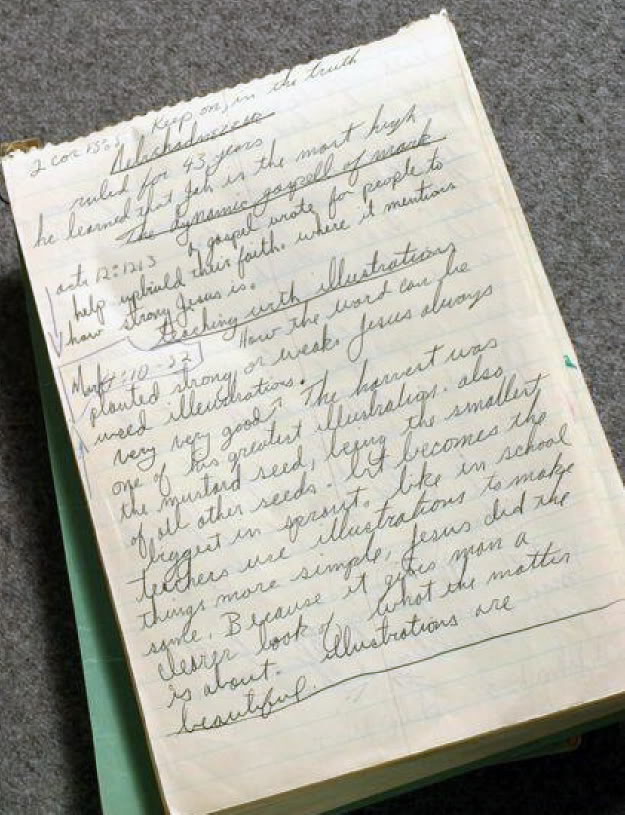 2 cor 13:5 Keep on, in the truth
Nebuchadnezzer
ruled for 43 years
he learned that Jah is the most high
The dynamic gospell of mark
acts 12:12,13 gospel wrote for people to
help upbuild their faith. where it mentions
how strong Jesus is.
teaching with illustrations
Mark 4:10-32 How the word can be
planted strong or weak. Jesus always
used illustrations.
very very good. The harvest was
one of his greatest illustration. also
the mustard seed, being the smallest
of all other seeds. but becomes the
biggest in sprout. like in school
teachers use illustrations to make
things more simple, Jesus did the
same. Because it gives man a
clearer look of what the matter
is about. illustrations are
beautiful.